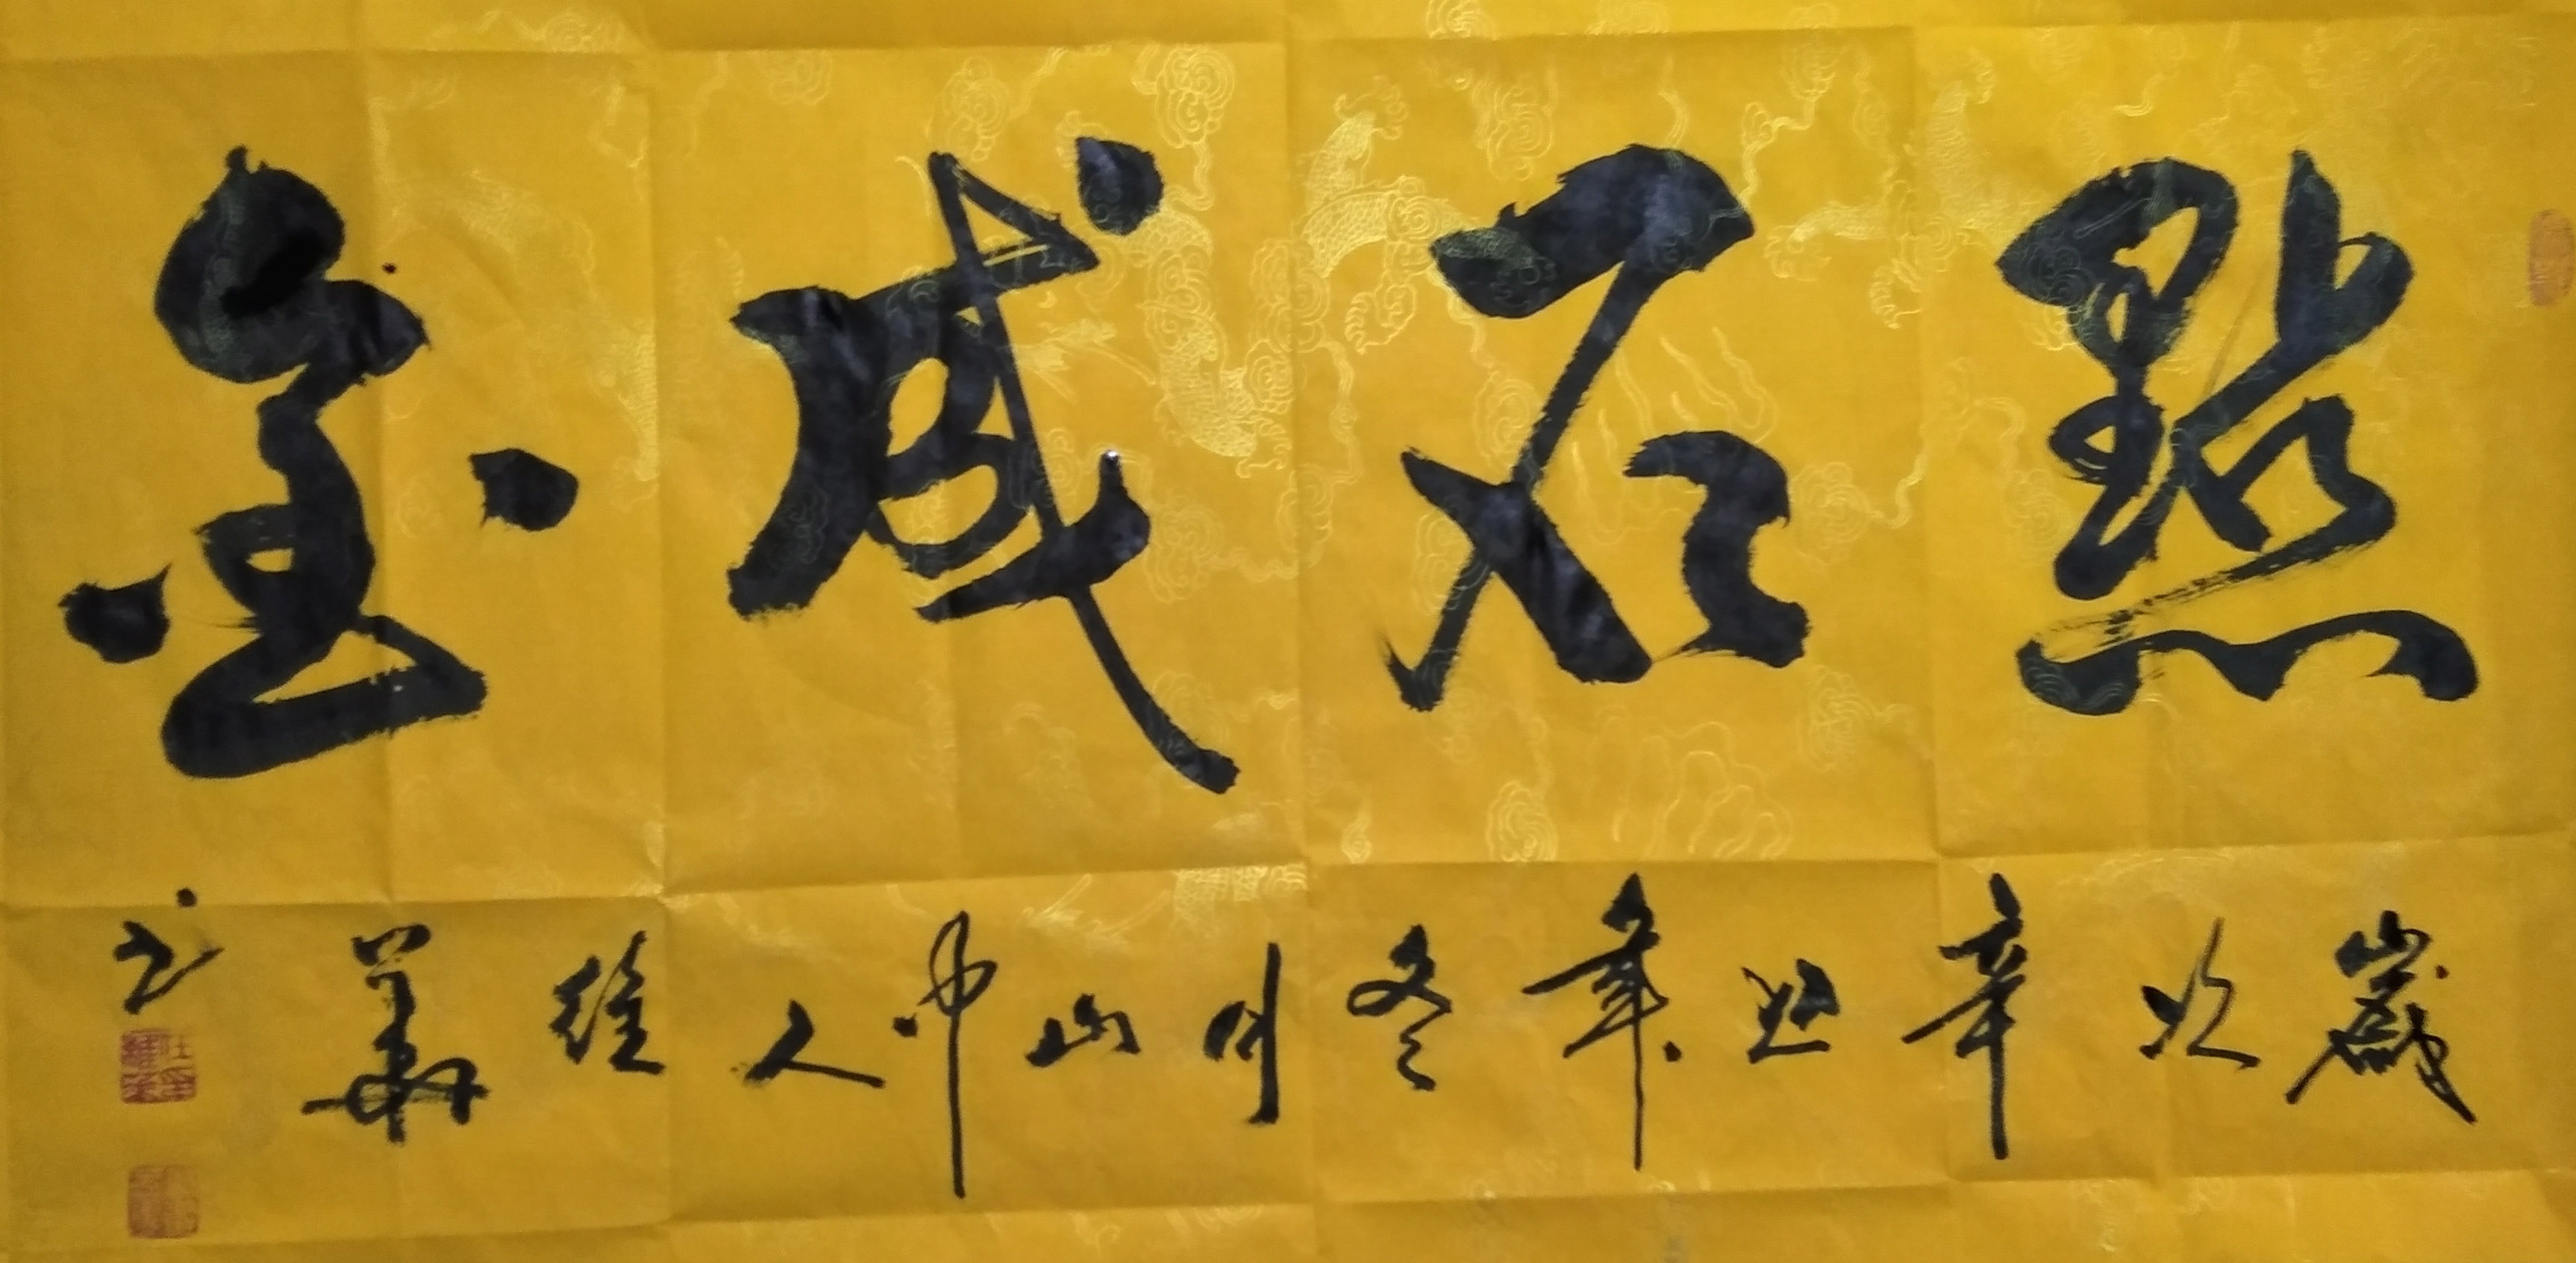 點石成金
歲次辛丑年冬月山中人維華书